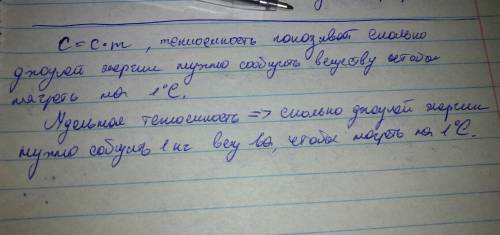 C = c · m, теплоемкость показывает сколько
джоулей энергии нужно сообщить веществу чтобы
нагреть на 1°C.
Удельная теплоемкость => сколько джоулей энергии
нужно сообщить 1 кг вещ-ва, чтобы нагреть на 1°C.